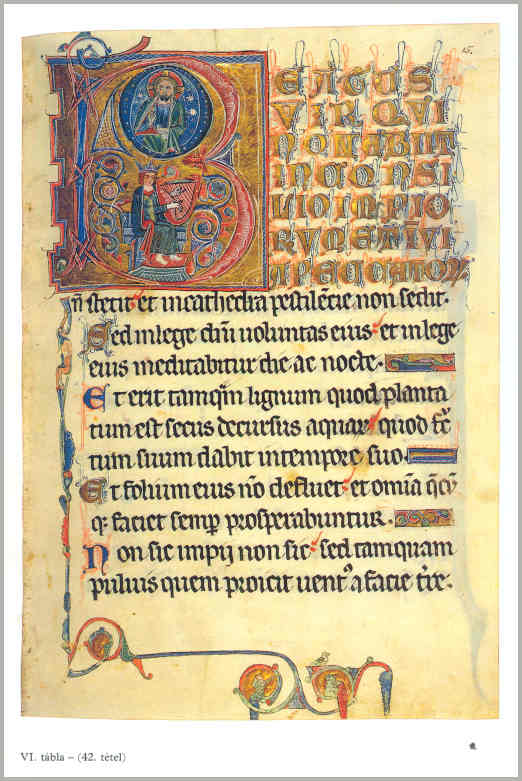 15.
BEATUS
VIR QVI
NON ABIIT
IN CONSI
LIO IMPIO
RVM ET Ī VI
A PECCATOR
n̄ stetit et in cathedra pestilēcie non sedit.
Sed in lege dn̄i uoluntas eius et in lege
eius meditabitur die ac nocte.
Et erit tamq̄m lignum quod planta
tum est secus decursus aquaꝝ quod fc̄
tum suum dabit in tempore suo.
Et folium eius nō defluet et omīa q̄cū
qꝫ faciet semꝑ prosperabuntur.
Non sic impij non sic sed tamquam
puluis quem proicit uentꝰ a facie tr̄e.
VI. tábla – (42. tétel)